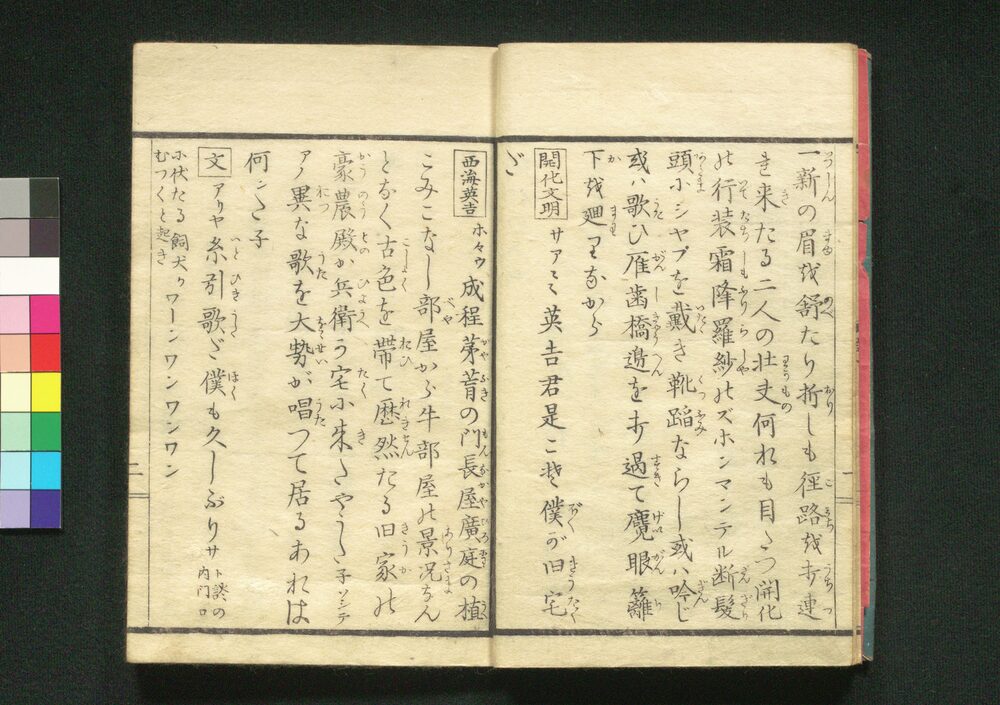 一新の眉越舒たり折しも徑路越打連
き来たる二人の壮夫何れも目立つ開化
の行装霜降羅紗のズホンマンテル断髪
頭にシヤプを戴き靴踏ならし或ハ吟じ
或ハ歌ひ雁歯橋邉を打過て魔眼籬
下越廻りながら
開化文明 サアミ英吉君是こそ僕が旧宅
だ
西海英吉 ホヽウ成程茅葺の門長屋廣庭の植
こみこなし部屋から牛部屋の景況なん
となく古色を帯て歴然たる旧家の
豪農殿か兵衛う宅に来たやうだ子ソシテ
アノ異な歌を大勢が唱つて居るあれは
何ンだ子
文 アリヤ糸引歌だ僕も久しぶりサ ト談の内門口
に伏たる飼犬がワーンワンワンワン
むつくと起き
二